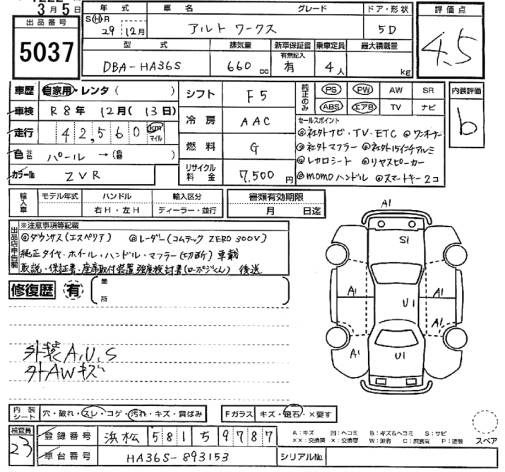 3月5日
出品番号 5037
年式 車名 グレード ドア・形状 評価点
S H R 29年 12月 アルト ワークス 5D 4.5
型式 排気量 新車保証書 乗車定員 最大積載量
DBA-HA36S 660cc 有無記入 有 4人 kg
車歴 自家用・レンタ( )
車検 R8年 12月(13日)
走行 42,560 km マイル
色 元色 パール→(色 )
カラーNo. ZVR
シフト F5
冷房 AAC
燃料 G
リサイクル料金 7,500円
純正のみ PS PW AW SR
ABS エアB TV ナビ
内装評価 b
セールスポイント
◎社外ナビ・TV・ETC ◎ワンオーナー
◎社外マフラー ◎社外15インチアルミ
◎レカロシート ◎リヤスピーカー
◎MOMOハンドル ◎スマートキー2コ
輸入車 モデル年式 ハンドル 輸入区分
年 右H・左H ディーラー・並行
書類有効期限
月 日迄
出品店申告欄
※注意事項等記載
◎ダウンサス(エスペリア) ◎レーダー(コムテック ZERO 300V)
純正タイヤ・ホイール・ハンドル・マフラー(切断)車載
取説・保証書・座席取付装置強度検討書(ローポジくん) 後送
修復歴 有 箇所
A1
S1
A1 A1
A1 U1 A1
U1
外装A,U,S
外AWキズ
内装シート 穴・破れ・スレ・コゲ・汚れ・キズ・質ばみ
Fガラス キズ・飛石・×要す
検査員 23
登録番号 浜松 581 ち 9787
車台番号 HA36S-893153
シリアルNo.
A:キズ U:ヘコミ B:キズ&ヘコミ S:サビ
XX:交換済 X:交換要 W:波者 C:腐食 P:塗装
スペア